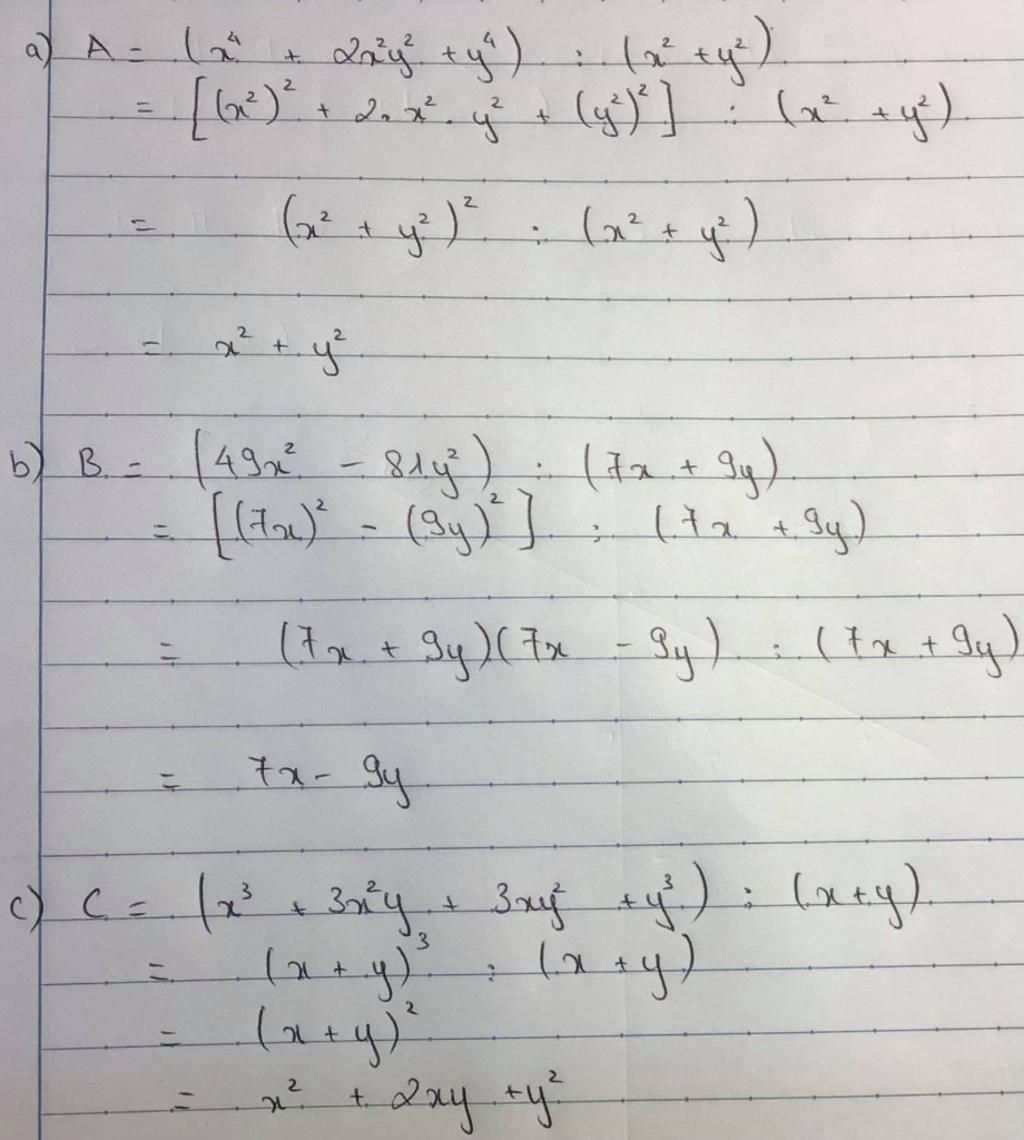 a) A = (x⁴ + 2x²y² + y⁴) : (x² + y²)
= [(x²)² + 2.x².y² + (y²)²] : (x² + y²)
= (x² + y²)² : (x² + y²)
= x² + y²
b) B = (49x² - 81y²) : (7x + 9y)
= [(7x)² - (9y)²] : (7x + 9y)
= (7x + 9y)(7x - 9y) : (7x + 9y)
= 7x - 9y
c) C = (x³ + 3x²y + 3xy² + y³) : (x+y)
= (x + y)³ : (x + y)
= (x + y)²
= x² + 2xy + y²